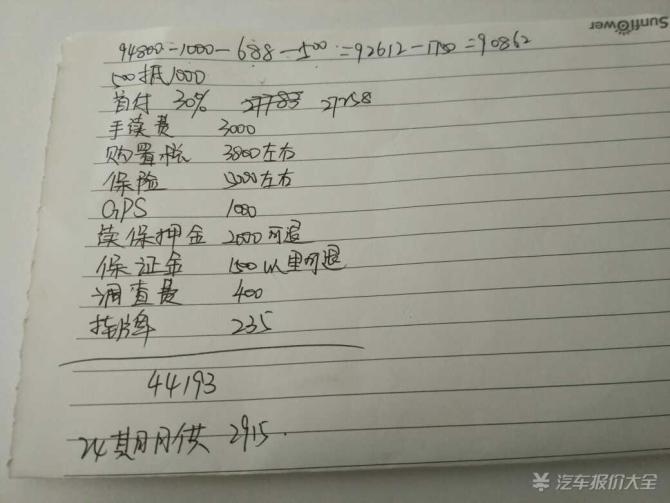 Sunflower
94800-1000-688-500=92612-1750=90862
500抵1000
首付 30% 27783 27258
手续费 3000
购置税 3800左右
保险 5000左右
GPS 1000
续保押金 2000可退
保证金 1500以里可退
调查费 400
挂牌 235
44193
24期月供 2915.
汽车报价大全